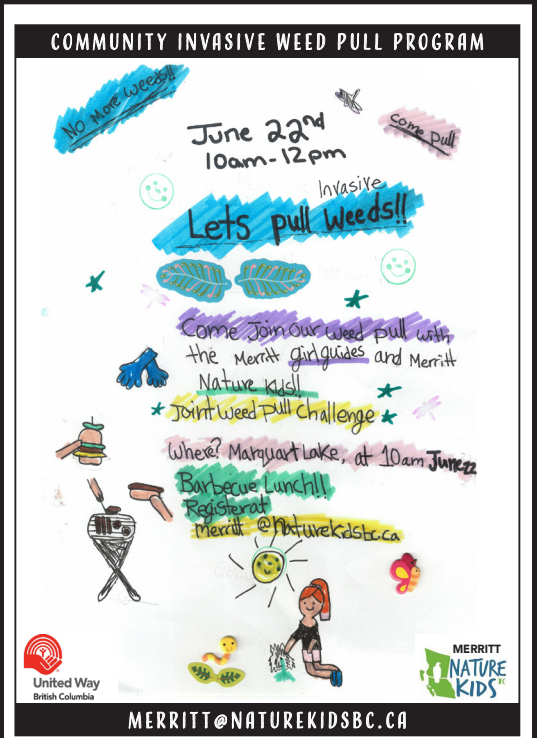 COMMUNITY INVASIVE WEED PULL PROGRAM
No More Weeds!!
Come Pull
June 22nd
10am-12pm
Invasive
Lets pull Weeds!!
Come Join our weed pull with
the Merritt girlguides and Merritt
Nature Kids!!
Joint Weed Pull Challenge
Where? Marquart Lake, at 10am June 22
Barbecue Lunch!!
Register at
merritt@naturekidsbc.ca
United Way
British Columbia
MERRITT
NATURE
KIDS BC
MERRITT@NATUREKIDSBC.CA